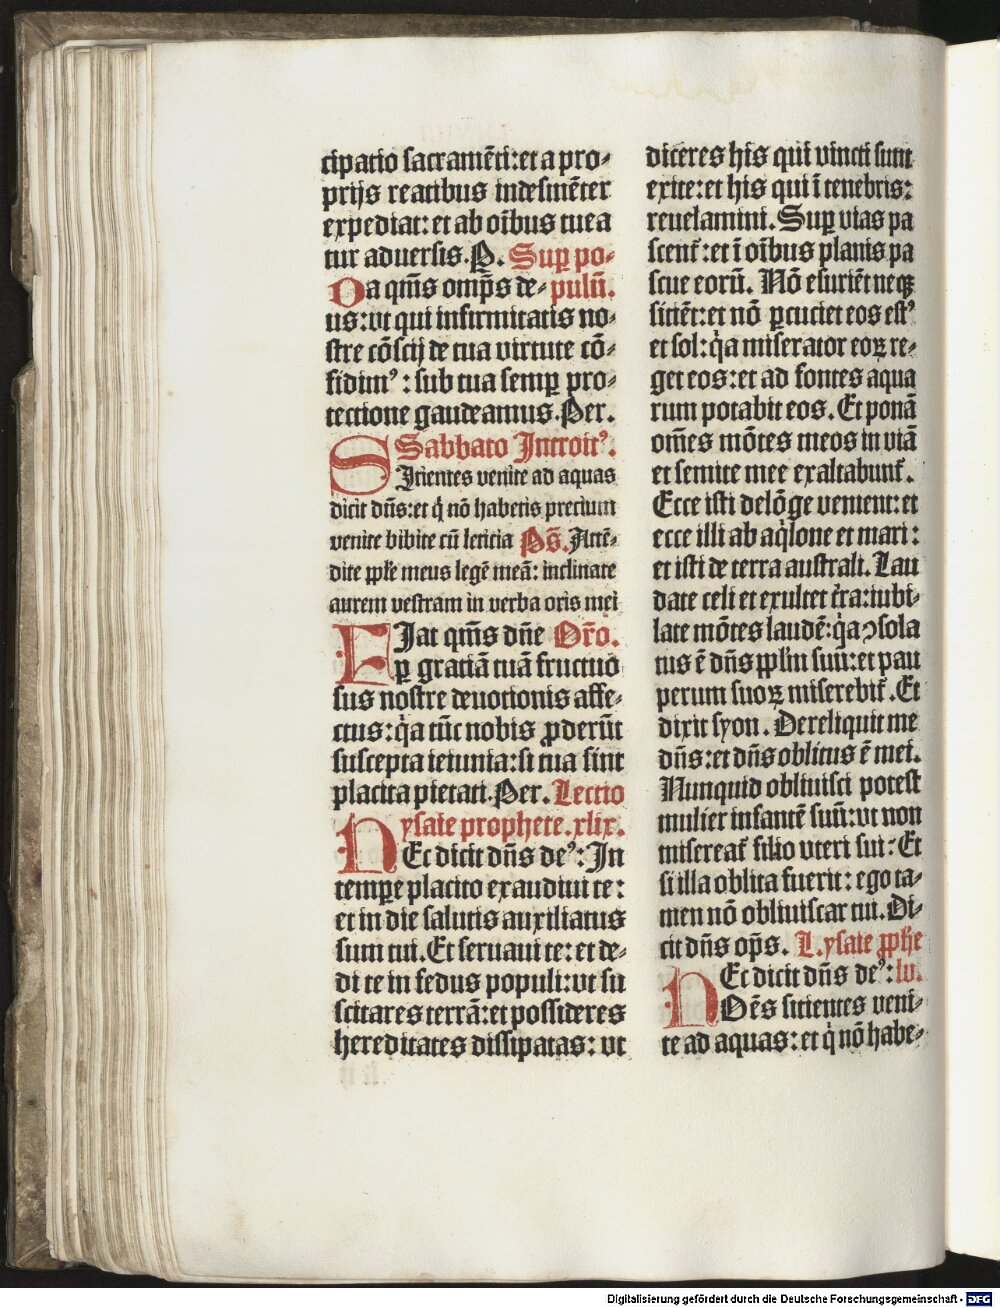 cipatio sacramēti: et a pro⸗
prijs reatibus indesinēter
expediat: et ab oībus tuea
tur aduersis. P. Sup̱ po⸗
Da qm̄s omp̄s de⸗ pulū.
us: vt qui infirmitatis no⸗
stre cōscij de tua virtute cō⸗
fidimꝰ: sub tua semp̱ pro⸗
tectione gaudeamus. Per.
Sabbato Introitꝰ.
SItientes venite ad aquas
dicit dn̄s: et q̇ nō habetis precium
venite bibite cū leticia Ps̄. Attē⸗
dite pp̄le meus legē meā: inclinate
aurem vestram in verba oris mei
FIat qm̄s dn̄e Or̄o.
p̱ gratiā tuā fructuo
sus nostre deuotionis affe⸗
ctus: q̇a tūc nobis ꝓderūt
suscepta ieiunia: si tua sint
placita pietati. Per. Lectio
ysaie prophete. xlix.
HEc dicit dn̄s deꝰ: In
temp̱e placito exaudiui te:
et in die salutis auxiliatus
sum tui. Et seruaui te: et de⸗
di te in fedus populi: vt su
scitares terrā: et possideres
hereditates dissipatas: vt
diceres his qui vincti sunt
exite: et his qui ī tenebris:
reuelamini. Sup̱ vias pa
scent᷑: et ī oībus planis pa
scue eorū. Nō esuriēt neqꝫ
sitiēt: et nō p̱cutiet eos estꝰ
et sol: q̇a miserator eoꝝ re⸗
get eos: et ad fontes aqua
rum potabit eos. Et ponā
om̄es mōtes meos in viā
et semite mee exaltabunt᷑.
Ecce isti delōge venient: et
ecce illi ab aq̇lone et mari:
et isti de terra australi. Lau
date celi et exultet t̄ra: iubi⸗
late mōtes laudē: q̇a ↄsola
tus ē dn̄s pp̄l'm suū: et pau
perum suoꝝ miserebit᷑. Et
dixit syon. Dereliquit me
dn̄s: et dn̄s oblitus ē mei.
Nunquid obliuisci potest
mulier infantē suū: vt non
misereat᷑ filio vteri sui: Et
si illa oblita fuerit: ego ta⸗
men nō obliuiscar tui. Di⸗
cit dn̄s op̄s. L. ysaie ꝓph̄e
HEc dicit dn̄s deꝰ: lv.
Om̄s sitientes veni⸗
te ad aquas: et q̇ nō habe⸗
Digitalisierung gefördert durch die Deutsche Forschungsgemeinschaft - DFG